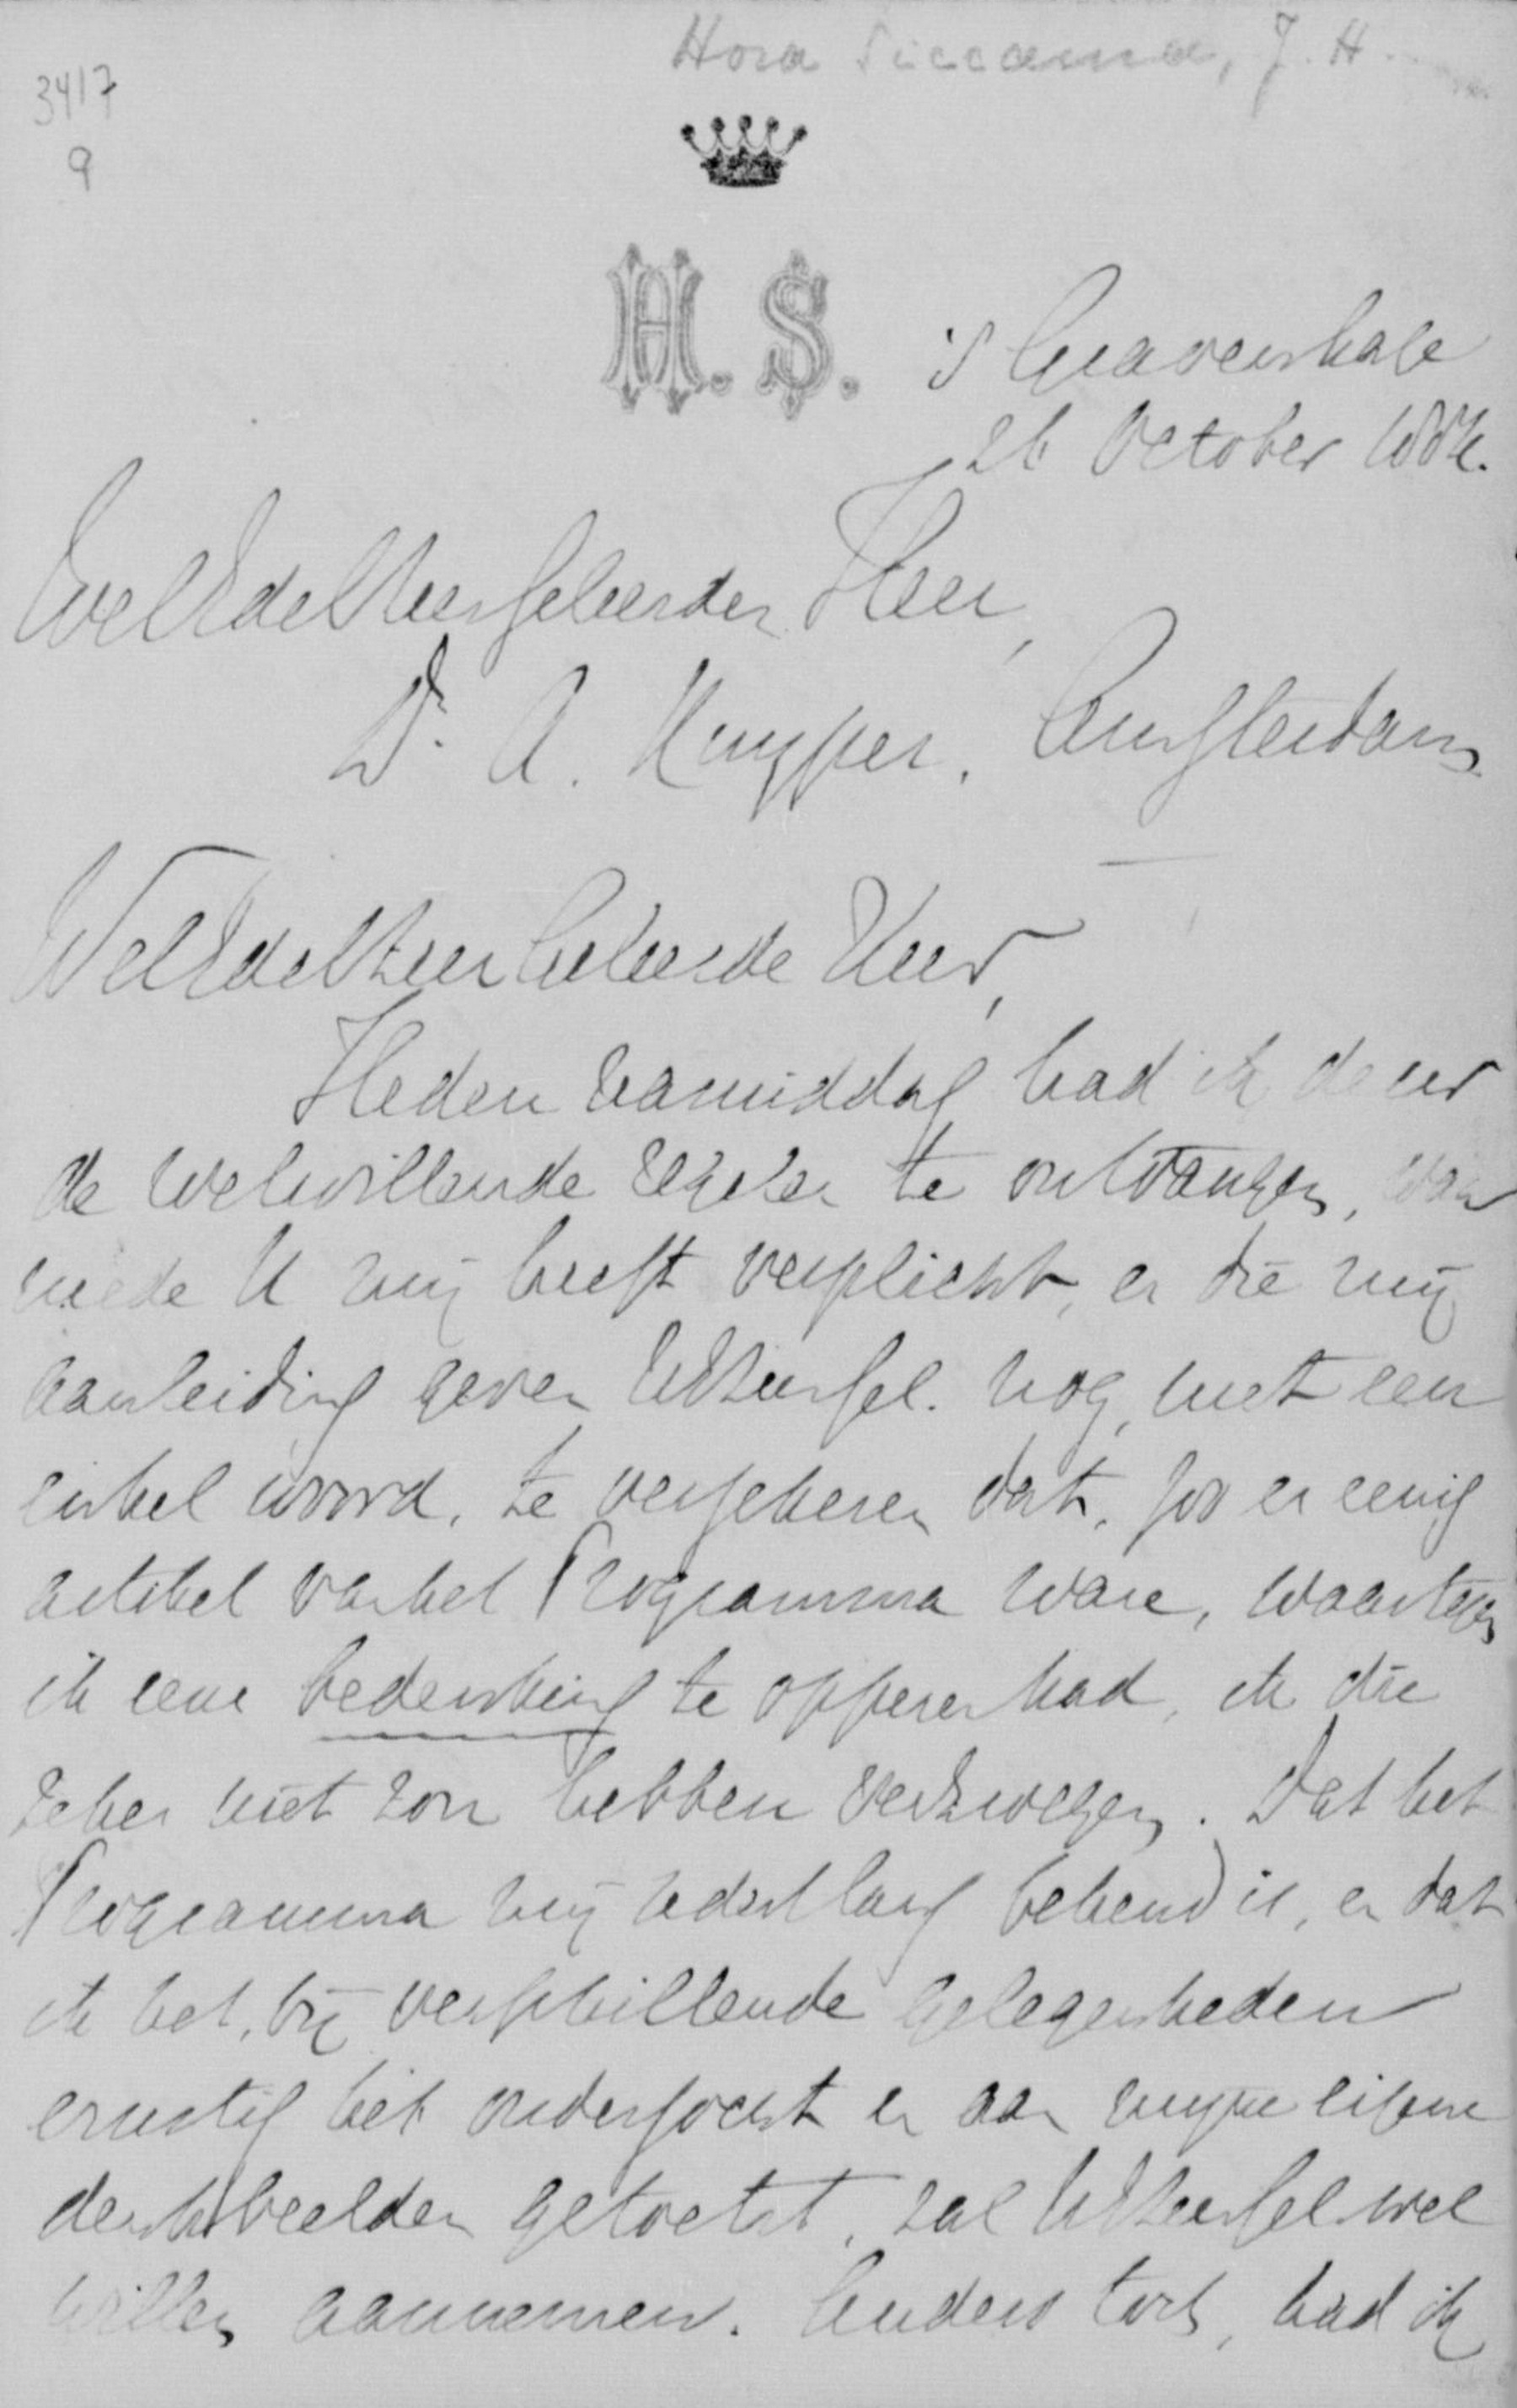 Hora Siccama, J. H.
3417
9
H. S.
's Gravenhage
26 October
WelEdelZeergeleerden Heer,
Dr. A. Kuyper, Amsterdam
WelEdelZeerGeleerde Heer,
Heden namiddag had ik de eer
de welwillende regelen te ontvangen, waar
mede U mij heeft verplicht, en die mij
aanleiding geven UEZeergel. nog, met een
enkel woord, te verzekeren dat, zoo er eenig
artikel van het Programma ware, waartegen
ik eene bedenking te opperen had, ik die
zeker niet zou hebben verzwegen. Dat het
Programma mij sedert lang bekend is, en dat
ik het, bij verschillende gelegenheden
ernstig heb onderzocht en aan mijne eigene
denkbeelden getoetst, zal UEZeergel wel
willen aannemen. Anders toch, had ik